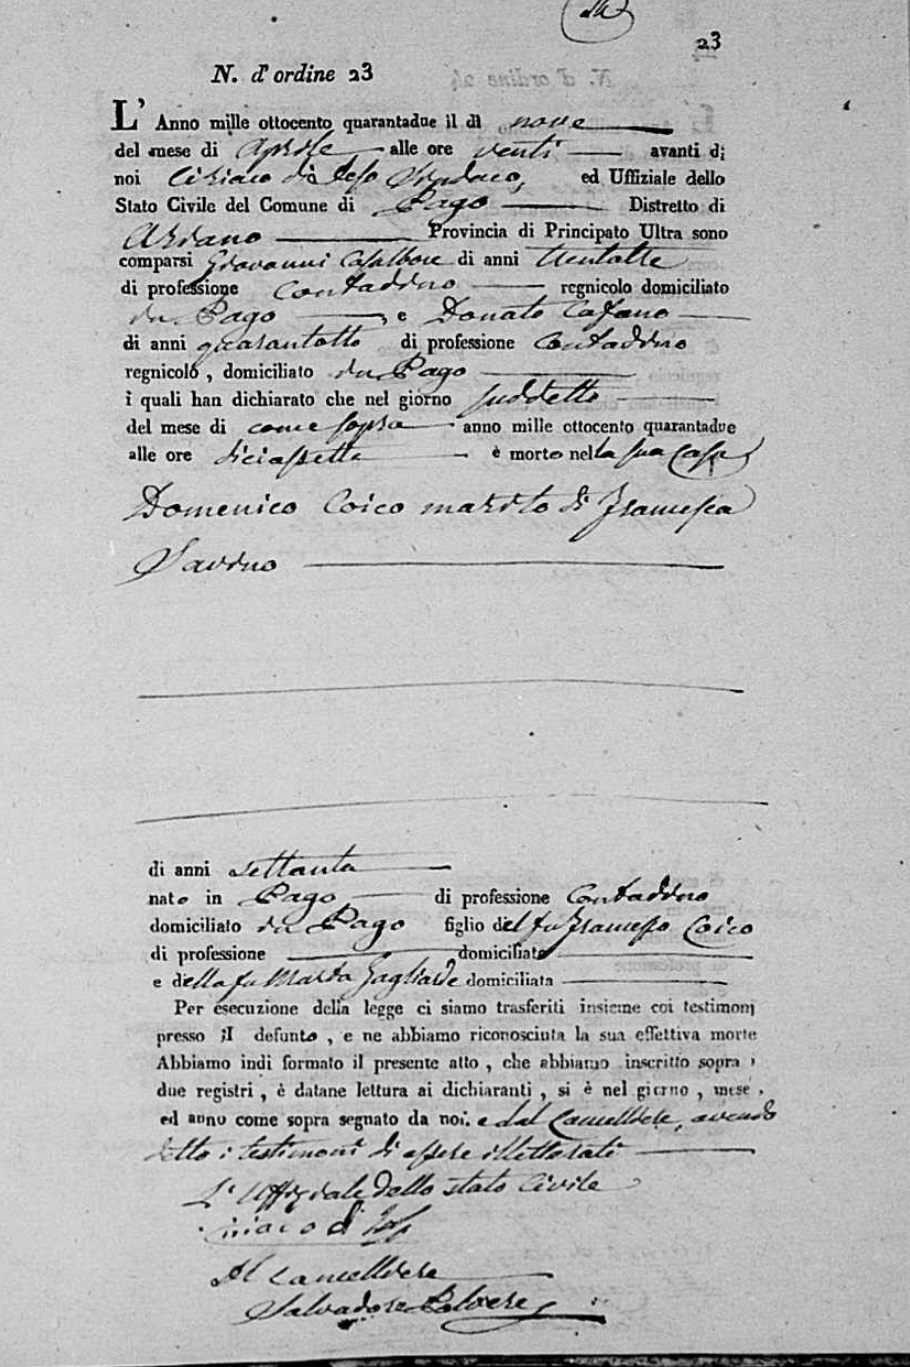 23
N. d' ordine 23
L' Anno mille ottocento quarantadue il dì nove
del mese di Aprile alle ore venti avanti di
noi Ciriaco di Sindaco, ed Uffiziale dello
Stato Civile del Comune di Pago Distretto di
Ariano Provincia di Principato Ultra sono
comparsi Giovanni Casalbore di anni trentatre
di professione Contadino regnicolo domiciliato
in Pago e Donato Cafano
di anni quarantotto di professione Contadino
regnicolo, domiciliato in Pago
i quali han dichiarato che nel giorno suddetto
del mese di come sopra anno mille ottocento quarantadue
alle ore diciassette è morto nella sua Casa
Domenico Coico marito di Francesca
Savino
di anni settanta
nato in Pago di professione Contadino
domiciliato in Pago figlio del fu Francesco Coico
di professione domiciliato
e della fu Maria Gagliarde domiciliata
Per esecuzione della legge ci siamo trasferiti insieme coi testimonj
presso il defunto, e ne abbiamo riconosciuta la sua effettiva morte
Abbiamo indi formato il presente atto, che abbiamo inscritto sopra i
due registri, è datane lettura ai dichiaranti, si è nel giorno, mese,
ed anno come sopra segnato da noi. e dal Cancelliere, avendo
detto i testimoni di essere illetterati
L' Uffiziale dello stato Civile
Ciriaco di
Il Cancelliere
Salvadore Polvere